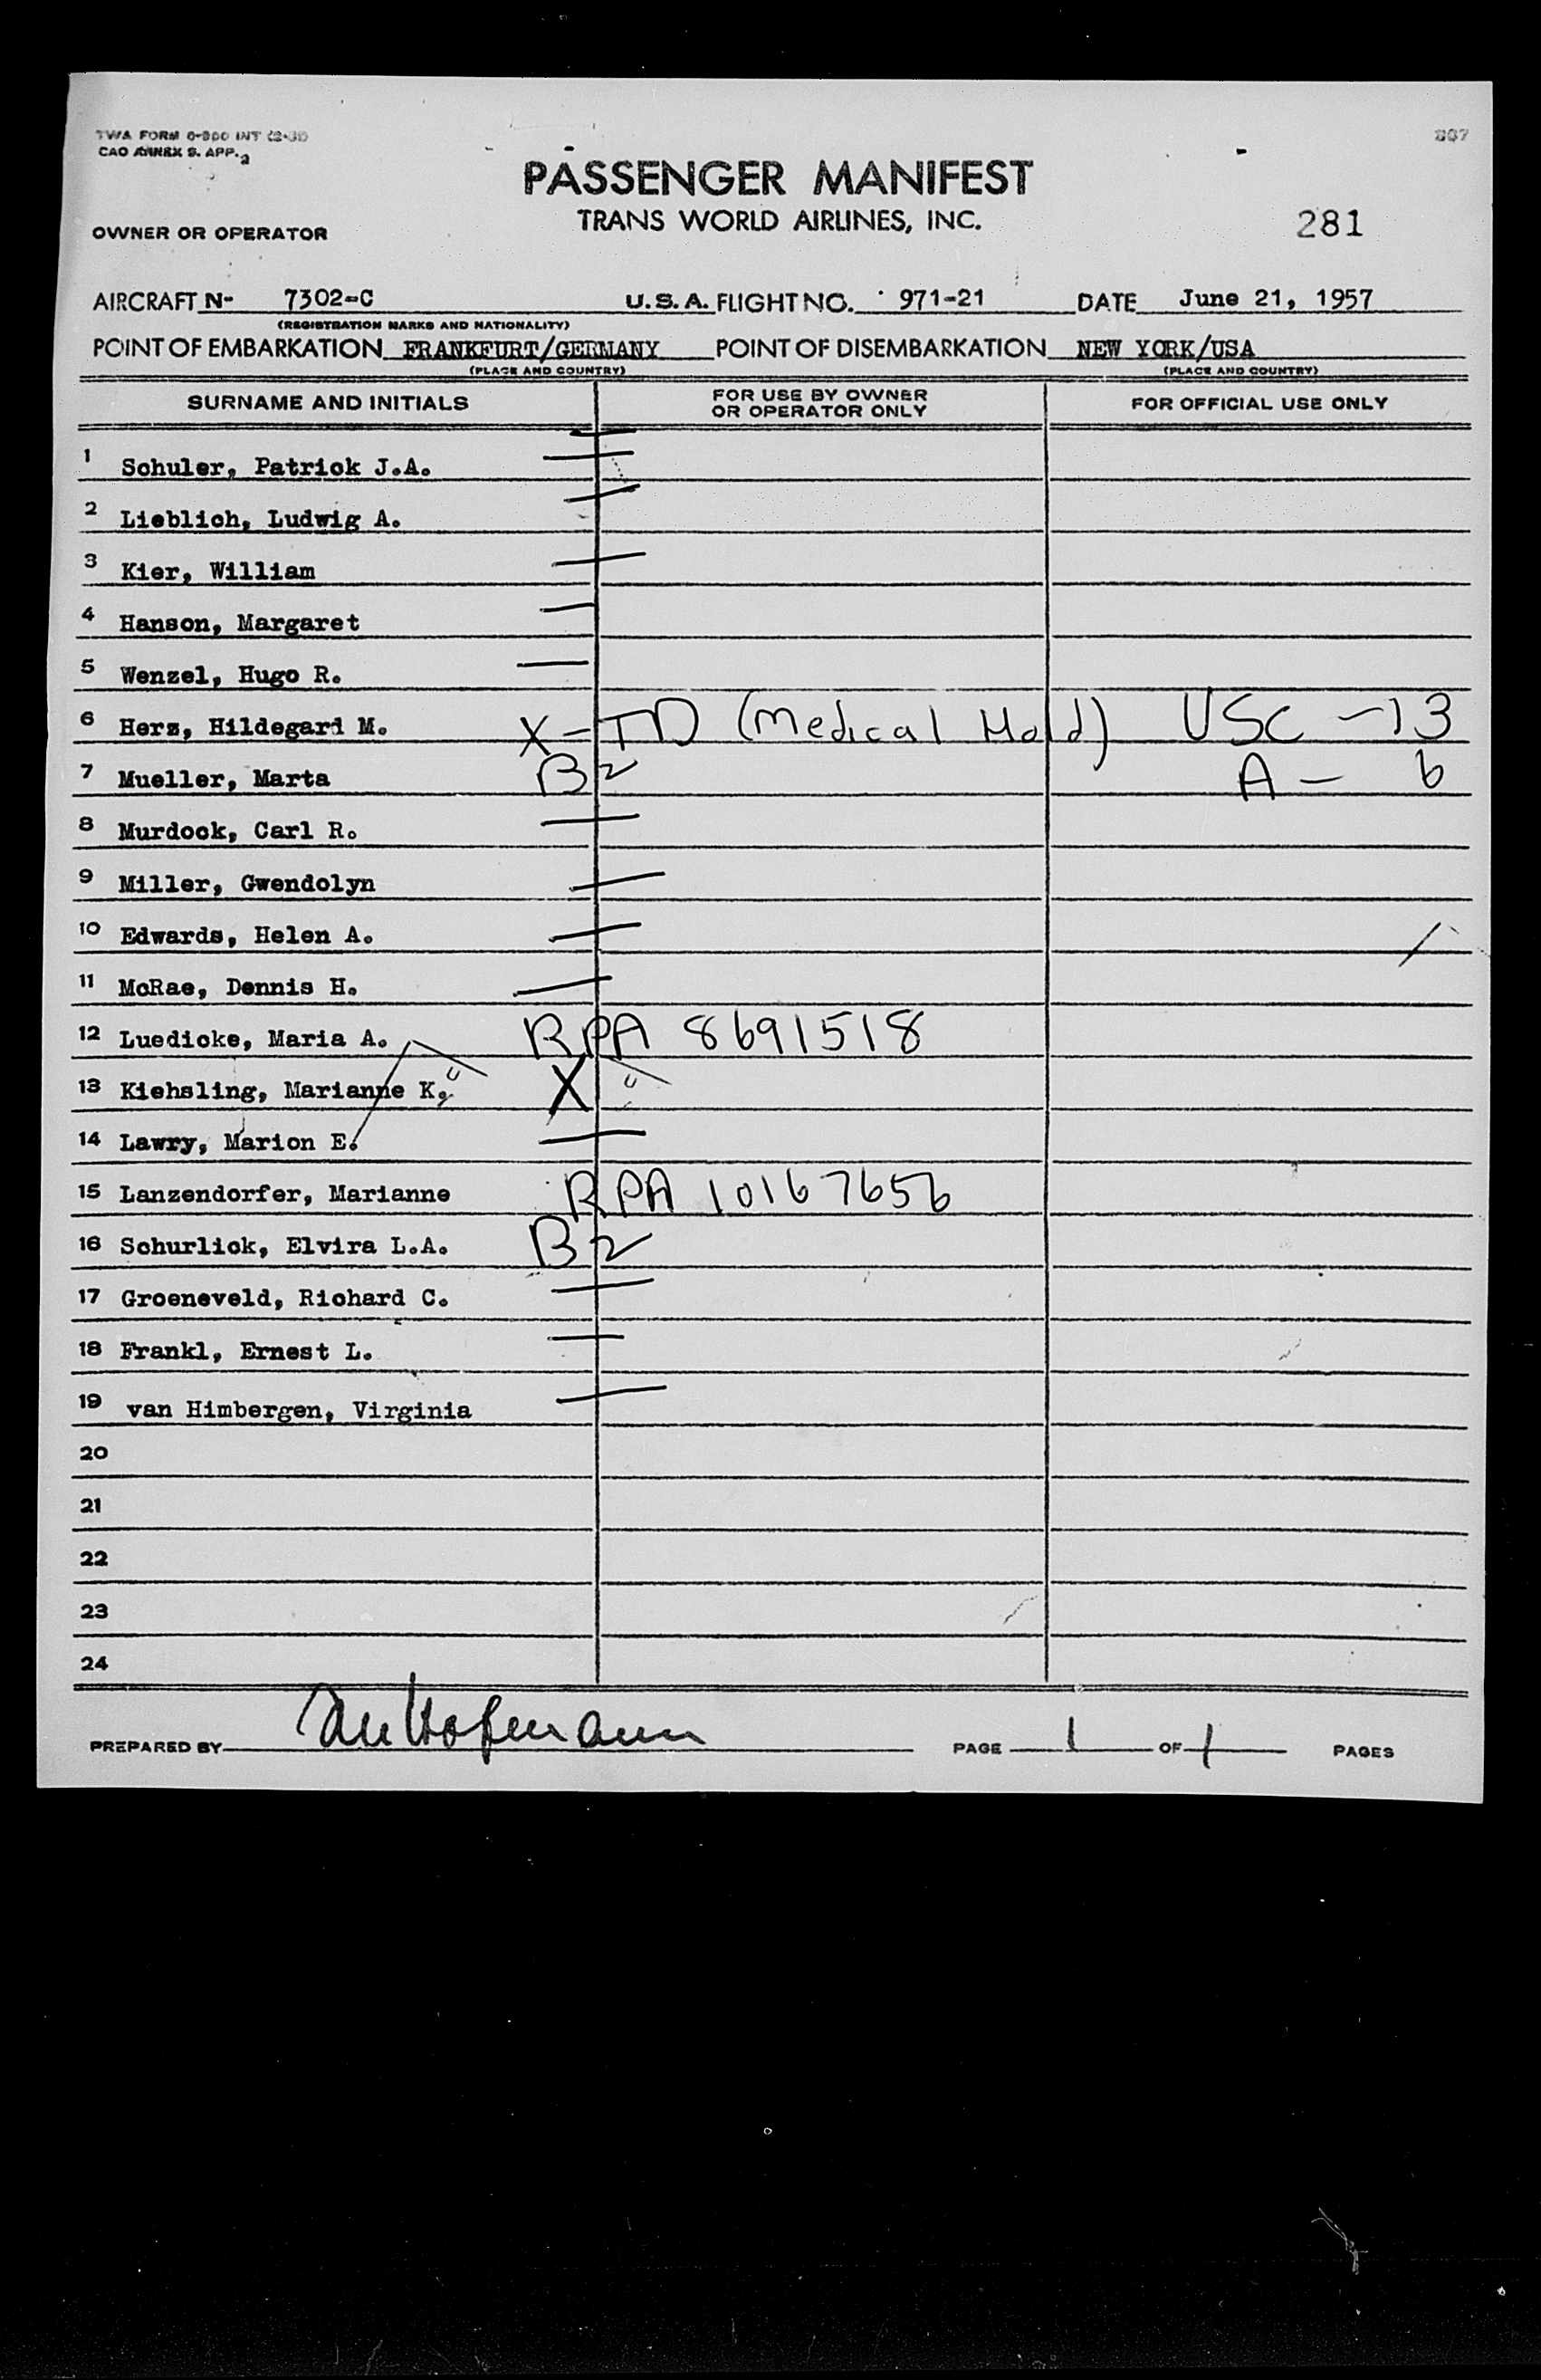 TWA FORM 0-800 INT
CAO ANNEX 9. APP. 2
PASSENGER MANIFEST
TRANS WORLD AIRLINES, INC.
281
OWNER OR OPERATOR
AIRCRAFT N- 7302-C U.S.A. FLIGHT NO. 971-21 DATE June 21, 1957
(REGISTRATION MARKS AND NATIONALITY)
POINT OF EMBARKATION FRANKFURT/GERMANY POINT OF DISEMBARKATION NEW YORK/USA
(PLACE AND COUNTRY) (PLACE AND COUNTRY)
SURNAME AND INITIALS FOR USE BY OWNER OR OPERATOR ONLY FOR OFFICIAL USE ONLY
1 Schuler, Patrick J.A.
2 Lieblich, Ludwig A.
3 Kier, William
4 Hanson, Margaret
5 Wenzel, Hugo R.
6 Herz, Hildegard M. X - TD (Medical Hold) USC - 13
7 Mueller, Marta B2 A - 6
8 Murdock, Carl R.
9 Miller, Gwendolyn
10 Edwards, Helen A.
11 McRae, Dennis H.
12 Luedicke, Maria A. RPA 8691518
13 Kiehsling, Marianne K. X
14 Lawry, Marion E.
15 Lanzendorfer, Marianne RPA 10167656
16 Schurlick, Elvira L.A. B2
17 Groeneveld, Richard C.
18 Frankl, Ernest L.
19 van Himbergen, Virginia
20
21
22
23
24
PREPARED BY PAGE 1 OF 1 PAGES